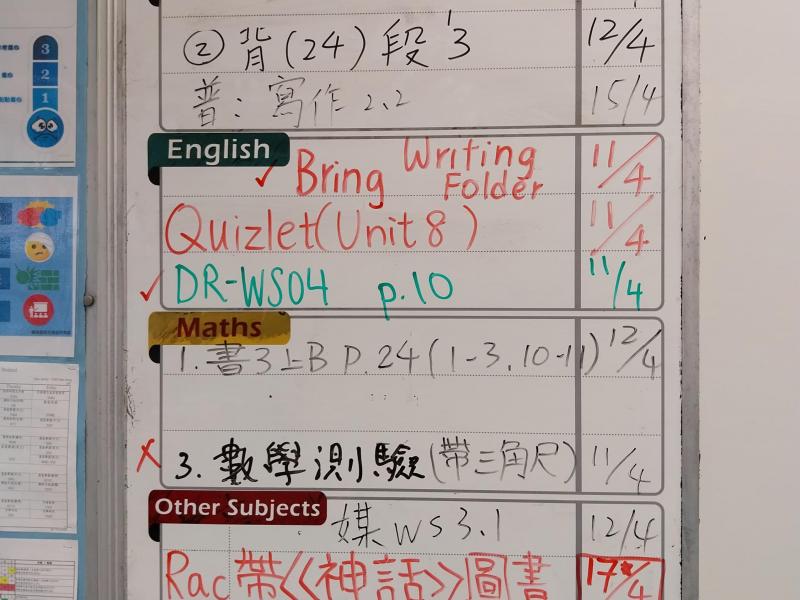 ② 背(24)段3 12/4
普:寫作2.2 15/4
3
2
1
English
✓ Bring Writing Folder 11/4
Quizlet(Unit 8) 11/4
✓ DR-WS04 p.10 11/4
Maths
1.書3上B P.24(1-3.10-11) 12/4
✗ 3.數學測驗(帶三角尺) 11/4
Other Subjects
媒WS3.1 12/4
Rac帶<<神話>>圖書 17/4